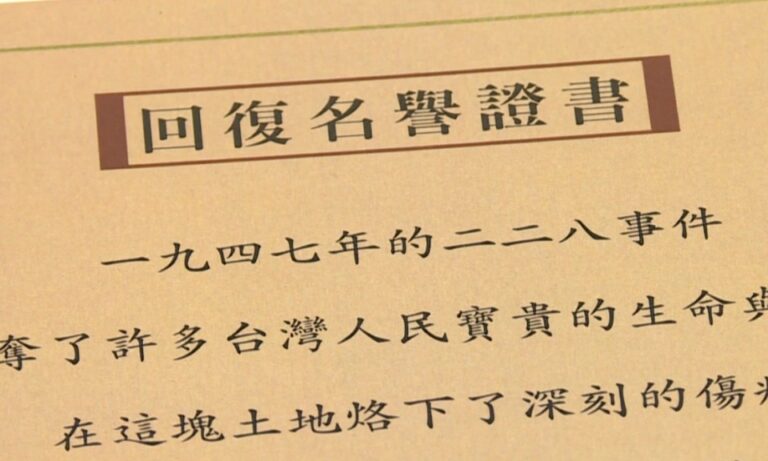 回復名譽證書
一九四七年的二二八事件
奪了許多台灣人民寶貴的生命與
在這塊土地烙下了深刻的傷